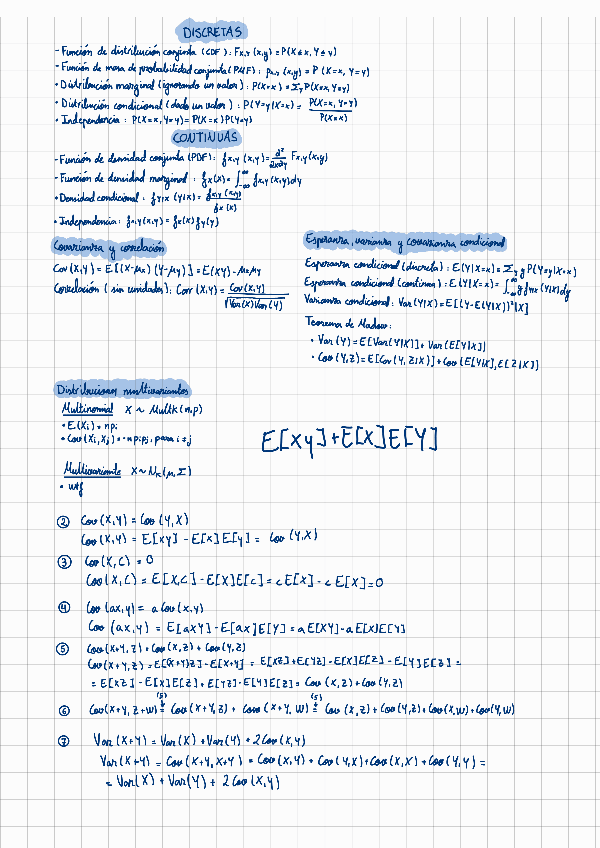 DISCRETAS
- Función de distribución conjunta (CDF): Fx,y (x,y) = P(X≤x, Y≤y)
- Función de masa de probabilidad conjunta (PMF): px,y (x,y) = P (X=x, Y=y)
• Distribución marginal (ignorando un valor): P(X=x) = Σy P(X=x, Y=y)
• Distribución condicional (dado un valor): P(Y=y|X=x) = P(X=x, Y=y) / P(X=x)
• Independencia: P(X=x, Y=y) = P(X=x) P(Y=y)
CONTINUAS
- Función de densidad conjunta (PDF): fx,y (x,y) = ∂²/∂x∂y Fx,y(x,y)
- Función de densidad marginal: fx(x) = ∫-∞^∞ fx,y (x,y)dy
• Densidad condicional: fy|x (y|x) = fx,y (x,y) / fx (x)
• Independencia: fx,y(x,y) = fx(x) fy(y)
Covarianza y correlación
Cov (X,Y) = E[(X-μx) (Y-μy)] = E(XY) - μxμy
Correlación (sin unidades): Corr (X,Y) = Cov(X,Y) / √Var(X)Var(Y)
Esperanza, varianza y covarianza condicional
Esperanza condicional (discreta): E(Y|X=x) = Σy y P(Y=y|X=x)
Esperanza condicional (continua): E(Y|X=x) = ∫-∞^∞ y fy|x (y|x)dy
Varianza condicional: Var(Y|X) = E[(Y-E(Y|X))²|X]
Teorema de Madow:
• Var (Y) = E[Var(Y|X)] + Var(E[Y|X])
• Cov (Y,Z) = E[Cov(Y,Z|X)] + Cov(E[Y|X], E[Z|X])
Distribuciones multivariantes
Multinomial X ~ MultK(n,p)
• E(Xi) = npi
• Cov(Xi,Xj) = -npipj, para i≠j
E[XY]+E[X]E[Y]
Multivariante X ~ Nk(μ,Σ)
• wtf
② Cov (X,Y) = Cov (Y,X)
Cov (X,Y) = E[XY] - E[X]E[Y] = Cov (Y,X)
③ Cov(X,C) = 0
Cov(X,C) = E[X,C] - E[X]E[C] = cE[X] - cE[X] = 0
④ Cov (aX,Y) = a Cov(X,Y)
Cov (aX,Y) = E[aXY] - E[aX]E[Y] = aE[XY] - aE[X]E[Y]
⑤ Cov(X+Y,Z) = Cov(X,Z) + Cov(Y,Z)
Cov(X+Y,Z) = E[(X+Y)Z] - E[X+Y] = E[XZ] + E[YZ] - E[X]E[Z] - E[Y]E[Z] =
= E[XZ] - E[X]E[Z] + E[YZ] - E[Y]E[Z] = Cov(X,Z) + Cov(Y,Z)
(5) (5)
⑥ Cov(X+Y, Z+W) = Cov(X+Y, Z) + Cov(X+Y, W) = Cov (X,Z) + Cov(Y,Z) + Cov(X,W) + Cov(Y,W)
⑦ Var(X+Y) = Var(X) + Var(Y) + 2Cov(X,Y)
Var(X+Y) = Cov(X+Y, X+Y) = Cov(X,Y) + Cov(Y,X) + Cov(X,X) + Cov(Y,Y) =
= Var(X) + Var(Y) + 2Cov(X,Y)